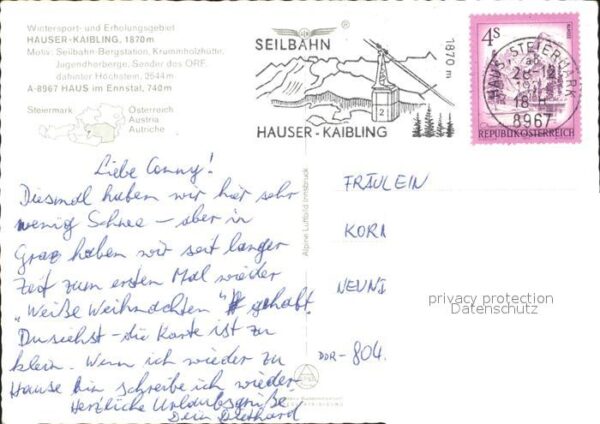 Wintersport- und Erholungsgebiet
HAUSER-KAIBLING, 1870m
Motiv: Seilbahn Bergstation, Krummholzhütte,
Jugendherberge, Sender des ORF,
dahinter Höchstein, 2544m
A-8967 HAUS im Ennstal, 740m
Steiermark
Österreich
Austria
Autriche
SEILBAHN
1870 m
2
HAUSER-KAIBLING
4S
HAUS, STEIERMARK
18
8967
REPUBLIK ÖSTERREICH
Liebe Conny!
Diesmal haben wir hier sehr
wenig Schnee – aber in
Graz haben wir seit langer
Zeit zum ersten Mal wieder
"Weiße Weihnachten" gehabt.
Du siehst – die Karte ist zu
klein. Wenn ich wieder zu
Hause bin schreibe ich wieder
Herzliche Urlaubsgrüße
Dein Diethard
Alpine Luftbild Innsbruck
FRÄULEIN
KORA
NEUNI
DDR – 804.
privacy protection
Datenschutz